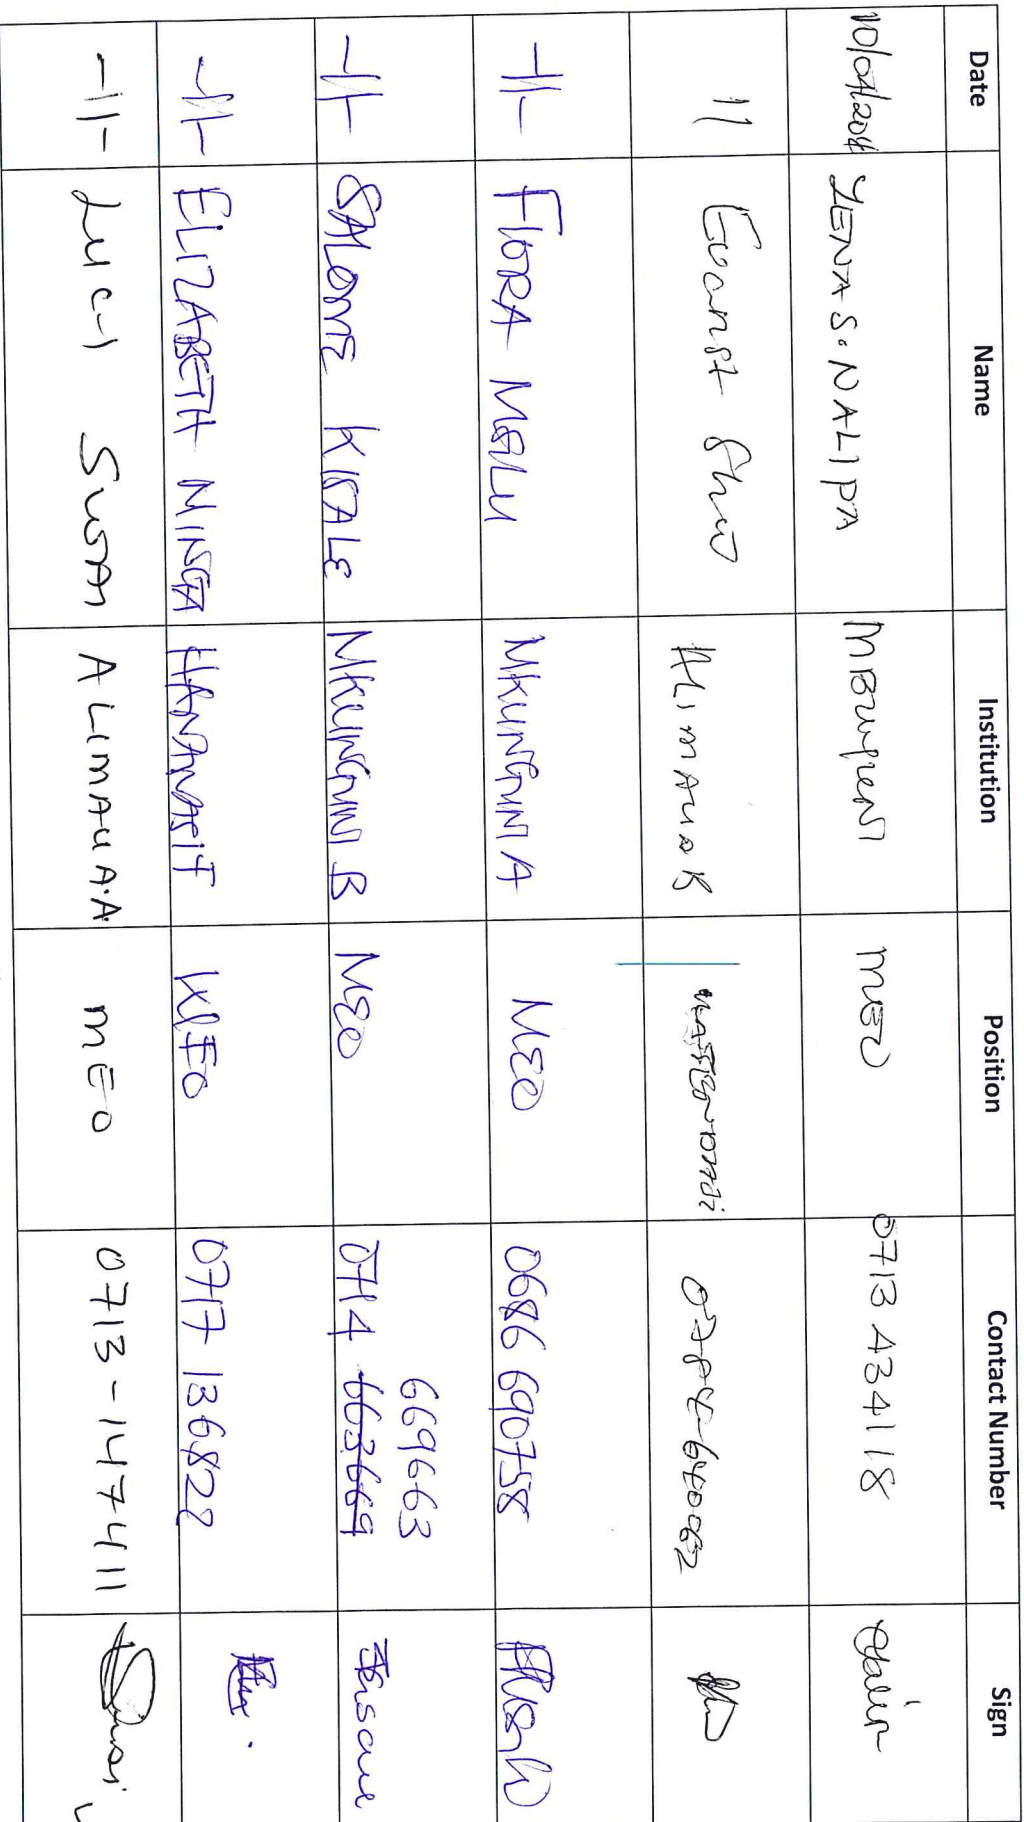 Date Name Institution Position Contact Number Sign
10/04/2014 YENA S. NALIPA MBUYUNI MEO 0713 434118
11 Evarist Shio ALIMAUA B 0784-640062
-11- FLORA MSALU MKUNGUNI A MEO 0686 690758
669663
-11- SALOME KISALE MKUNGUNI B MEO 0714 663669
-11- ELIZABETH MINGA HANANASIF WEO 0717 136822
-11- ALIMAUA.A MEO 0713-147411